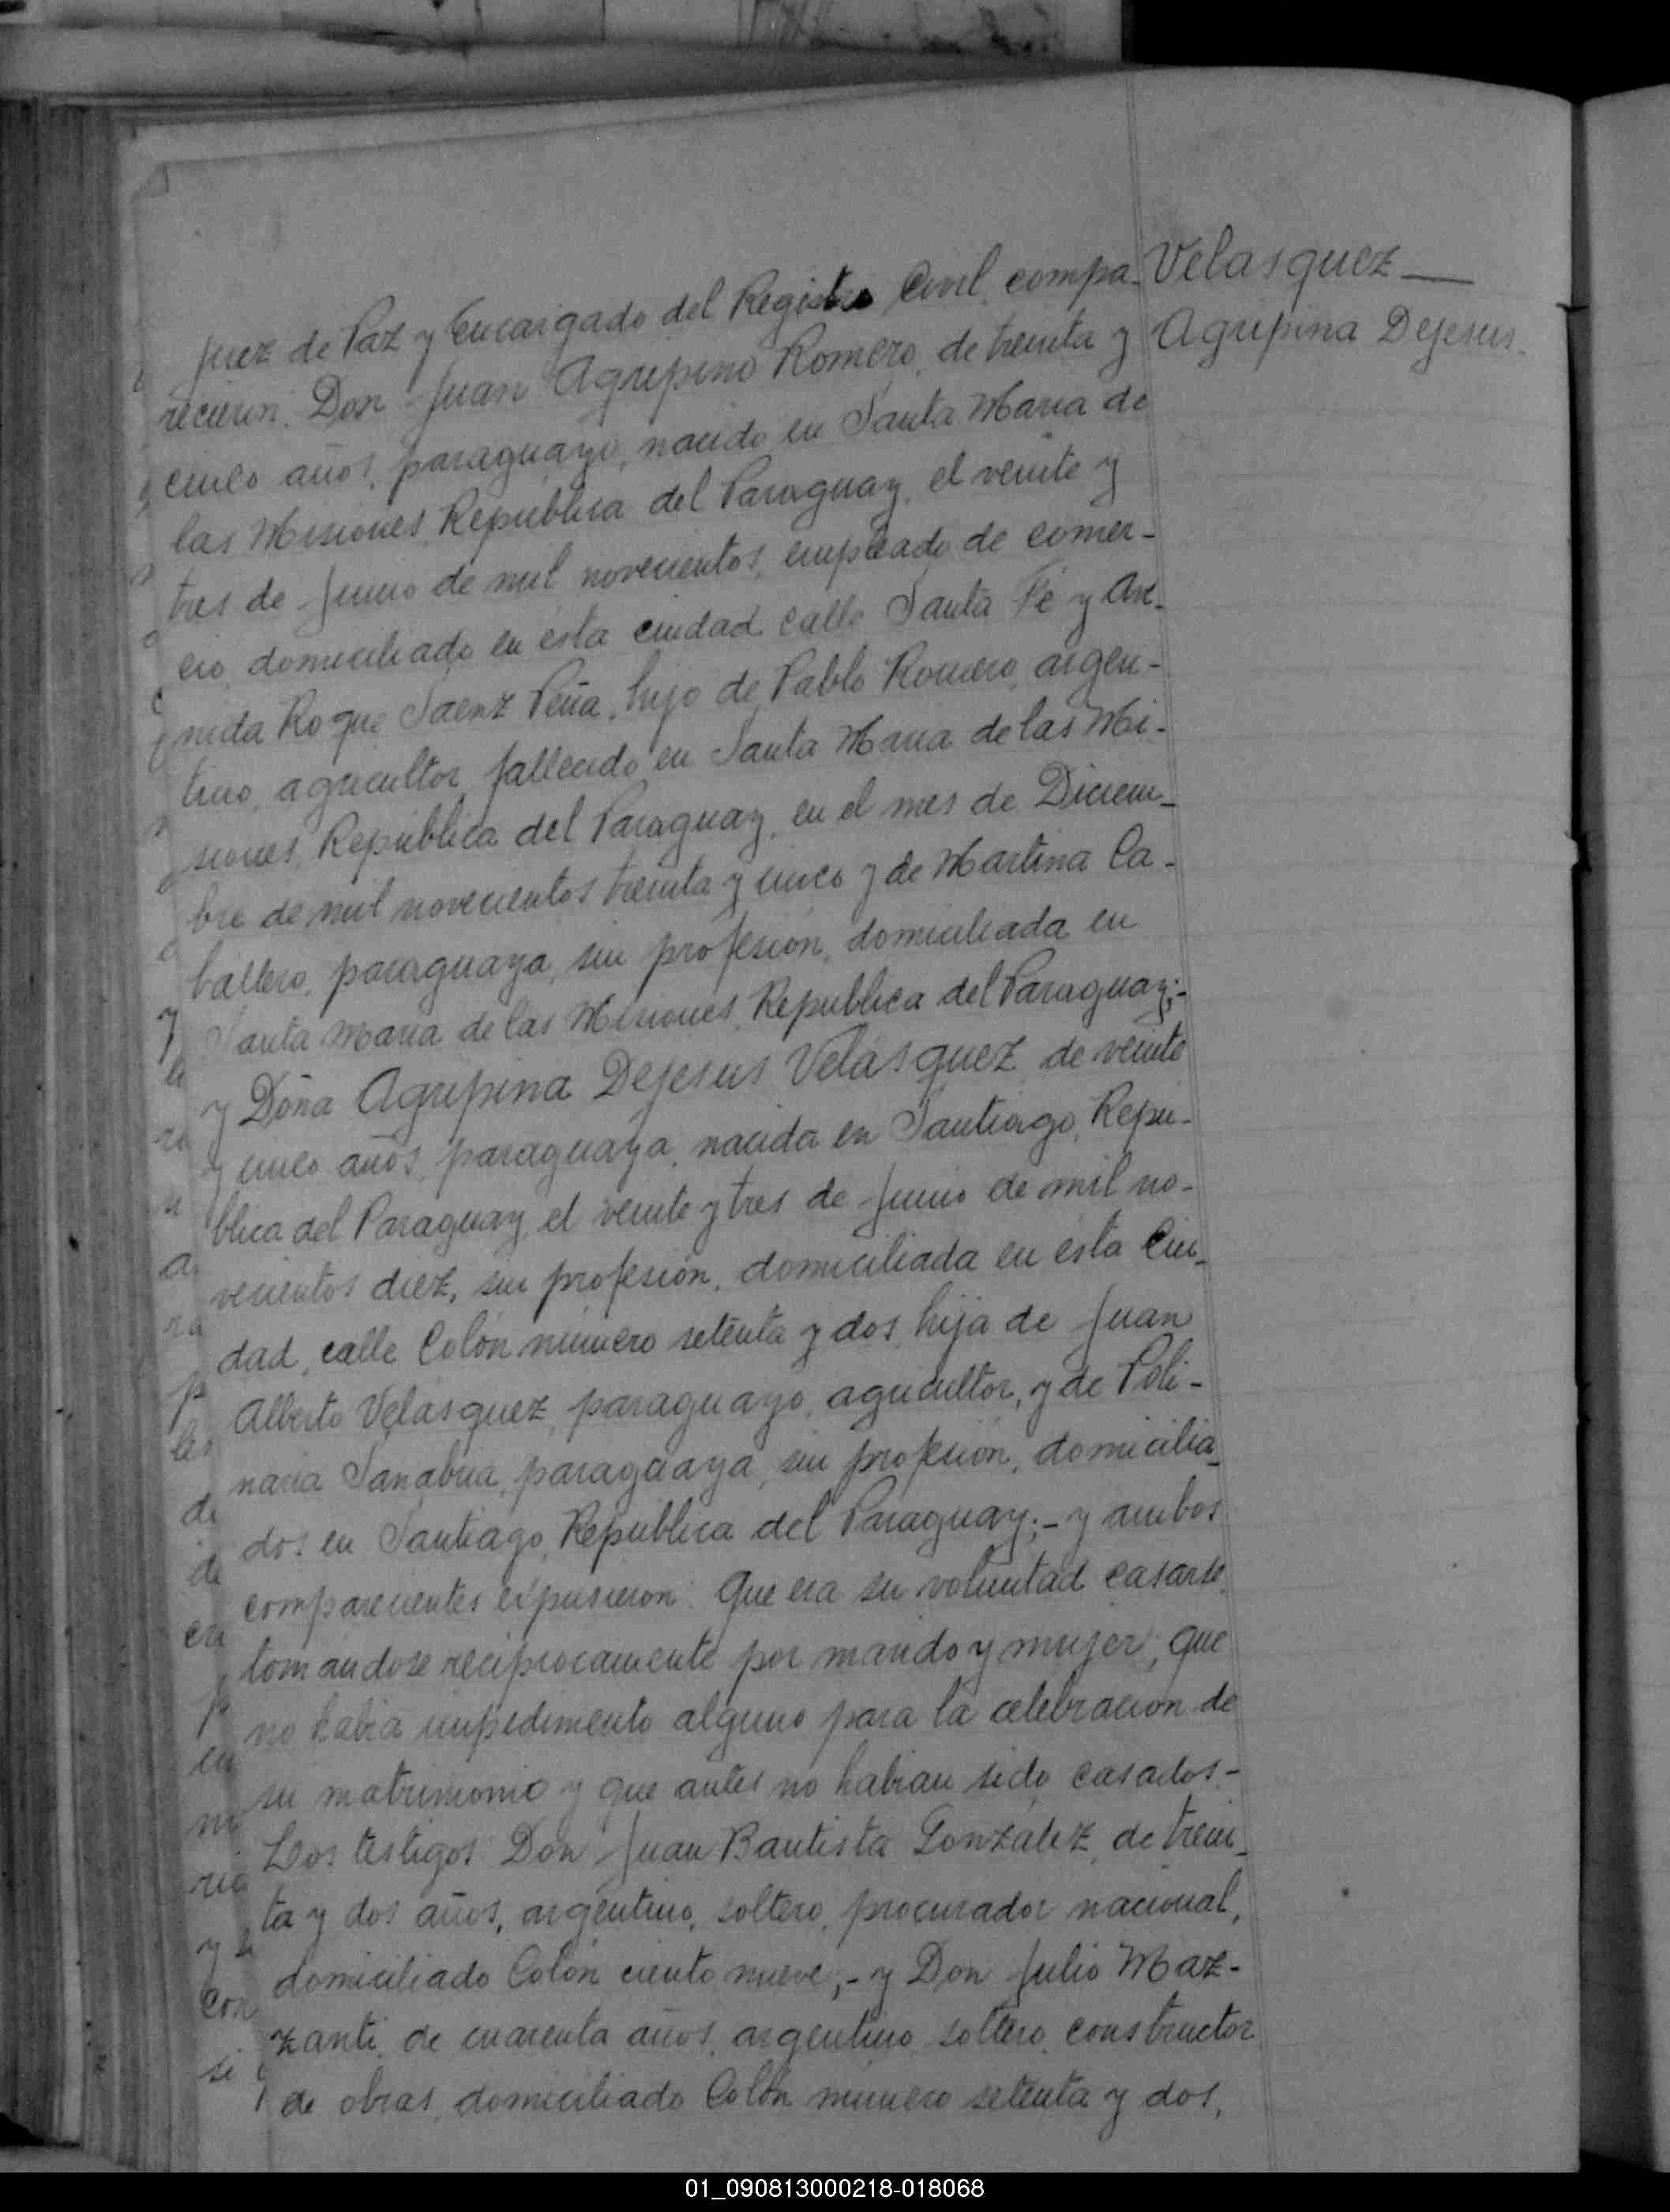 Juez de Paz y Encargado del Registro Civil, compa-
recieron: Don Juan Agrepino Romero, de treinta y
cinco años, paraguayo, nacido en Santa Maria de
las Misiones, República del Paraguay, el veinte y
tres de Junio de mil novecientos, empleado de comer-
cio, domiciliado en esta ciudad calle Santa Fé y Ave-
nida Roque Saenz Peña, hijo de Pablo Romero, argen-
tino, agricultor, fallecido en Santa Maria de las Mi-
siones, República del Paraguay, en el mes de Diciem-
bre de mil novecientos treinta y cinco y de Martina Ca-
ballero, paraguaya, sin profesión, domiciliada en
Santa Maria de las Misiones, República del Paraguay;-
y Doña Agripina Dejesus Velásquez, de veinte
y cinco años, paraguaya, nacida en Santiago, Repú-
blica del Paraguay, el veinte y tres de Junio de mil no-
vecientos diez, sin profesión, domiciliada en esta Ciu-
dad, calle Colón número setenta y dos, hija de Juan
Alberto Velásquez, paraguayo, agricultor, y de Poli-
naria Sanabria, paraguaya, sin profesión, domicilia-
dos en Santiago, República del Paraguay;- y ambos
comparecientes expusieron: Que era su voluntad casarse,
tomandose reciprocamente por marido y mujer; que
no habia impedimento alguno para la celebración de
su matrimonio y que antes no habian sido casados.-
Los testigos: Don Juan Bautista González, de trein-
ta y dos años, argentino, soltero, procurador nacional,
domiciliado Colón ciento nueve;- y Don Julio Maz-
zanti, de cuarenta años, argentino, soltero, constructor
de obras, domiciliado Colón número setenta y dos,
Velasquez
Agripina Dejesus.
01_090813000218-018068